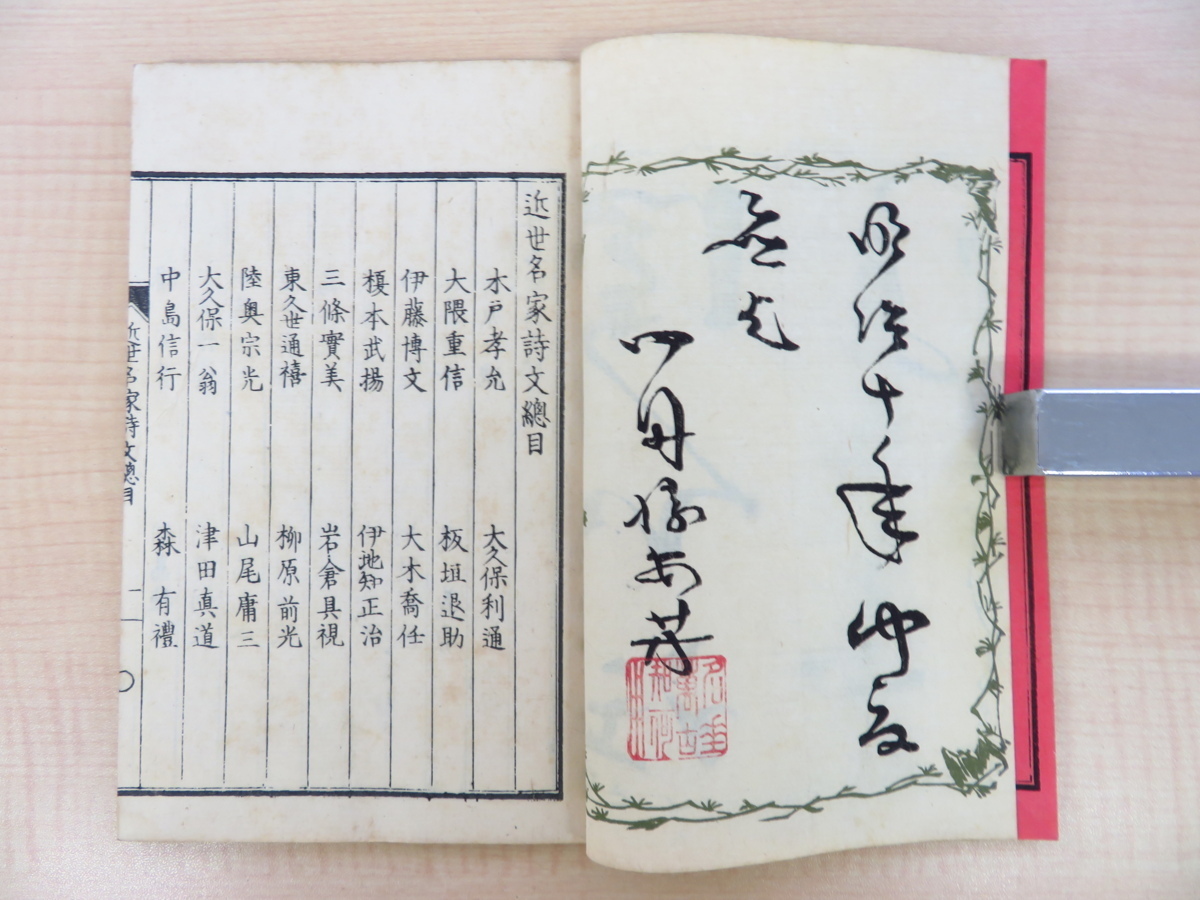 明治十年仲夏
四月
近世名家詩文總目
木戸孝允 大久保利通
大隈重信 板垣退助
伊藤博文 大木喬任
榎本武揚 伊地知正治
三條實美 岩倉具視
東久世通禧 柳原前光
陸奥宗光 山尾庸三
大久保一翁 津田真道
中島信行 森有禮
近世名家詩文總目 一